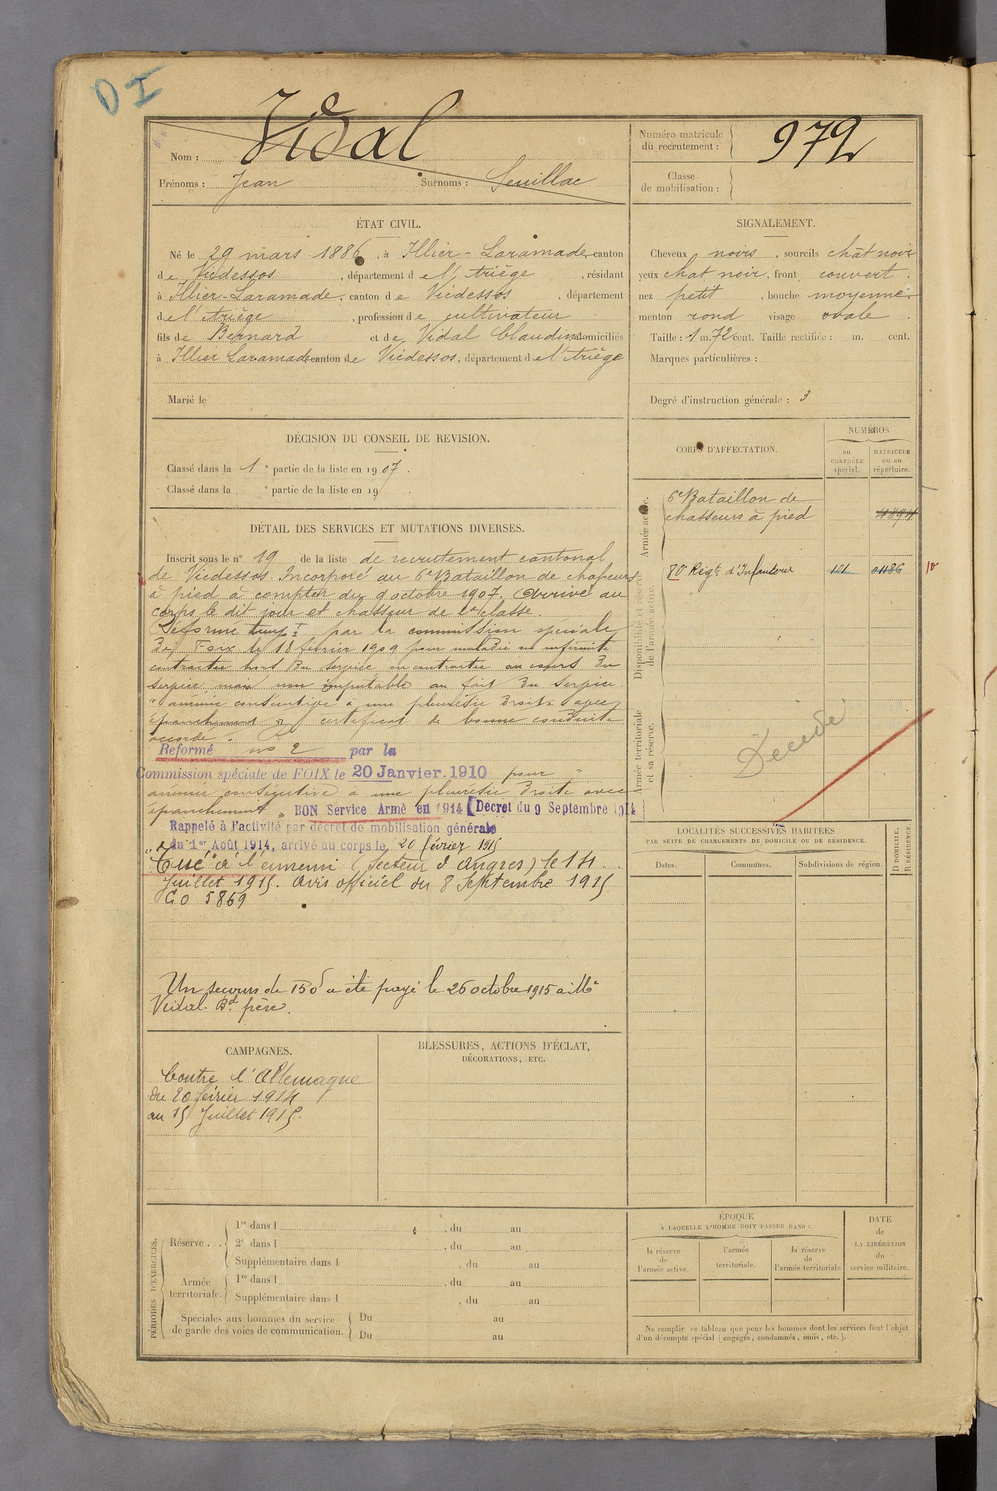 DI
Nom : Vidal
Prénoms : Jean Surnoms : Seuillac
Numéro matricule
du recrutement : 972
Classe
de mobilisation :
ÉTAT CIVIL.
Né le 29 mars 1886, à Illier-Laramade, canton
de Vicdessos, département de l'Ariège, résidant
à Illier-Laramade, canton de Vicdessos, département
de l'Ariège, profession de cultivateur
fils de Bernard et de Vidal Claudine domiciliés
à Illier Laramade canton de Vicdessos, département de l'Ariège
Marié le
SIGNALEMENT.
Cheveux noirs, sourcils chât noir
yeux chat noir, front couvert
nez petit, bouche moyenne
menton rond visage ovale
Taille : 1 m. 72 cent. Taille rectifiée : m. cent.
Marques particulières :
Degré d'instruction générale : 3
DÉCISION DU CONSEIL DE REVISION.
Classé dans la 1e partie de la liste en 1907.
Classé dans la e partie de la liste en 19 .
DÉTAIL DES SERVICES ET MUTATIONS DIVERSES.
Inscrit sous le n° 19 de la liste de recrutement cantonal
de Vicdessos. Incorporé au 6e Bataillon de chasseurs
à pied à compter du 9 octobre 1907. Arrivé au
corps le dit jour et chasseur de 2e classe.
Réformé temp. par la commission spéciale
de Foix le 18 février 1909 pour maladie ou infirmité
contractée hors du service ou contractée au cours du
service mais non imputable au fait du service
"anémie consécutive à une pleurésie droite avec
épanchement" certificat de bonne conduite
accordé.
Réformé no 2 par la
Commission spéciale de FOIX le 20 Janvier 1910 pour "
anémie consécutive à une pleurésie droite avec
épanchement" BON Service Armé en 1914 (Decret du 9 Septembre 1914
Rappelé à l'activité par décret de mobilisation générale
du 1er Août 1914, arrivé au corps le 20 février 1915
"Tué" à l'ennemi (secteur d'Angres) le 14
Juillet 1915. Avis officiel du 8 Septembre 1915
GO 5869
Un secours de 150f a été payé le 26 octobre 1915 à Mr
Vidal Bd père.
CORPS D'AFFECTATION.
NUMÉROS
au
CONTRÔLE
spécial.
MATRICULE
ou au
répertoire.
Armée active.
6e Bataillon de
chasseurs à pied 4894
Disponibilité et réserve
de l'armée active.
80e Régt d'Infanterie 111 01186
Armée territoriale
et sa réserve.
Décédé
LOCALITÉS SUCCESSIVES HABITÉES
PAR SUITE DE CHANGEMENTS DE DOMICILE OU DE RÉSIDENCE.
Dates. Communes. Subdivisions de région.
D DOMICILE,
R RÉSIDENCE.
CAMPAGNES.
Contre l'Allemagne
du 20 février 1914
au 15 Juillet 1915.
BLESSURES, ACTIONS D'ÉCLAT,
DÉCORATIONS, ETC.
PÉRIODES D'EXERCICES.
Réserve . . .
1re dans l , du au
2e dans l , du au
Supplémentaire dans l , du au
Armée
territoriale.
1re dans l , du au
Supplémentaire dans l , du au
Spéciales aux hommes du service
de garde des voies de communication.
Du au
Du au
ÉPOQUE
À LAQUELLE L'HOMME DOIT PASSER DANS :
la réserve
de
l'armée active.
l'armée
territoriale.
la réserve
de
l'armée territoriale
DATE
de
LA LIBÉRATION
du
service militaire.
Ne remplir ce tableau que pour les hommes dont les services font l'objet
d'un décompte spécial (engagés, condamnés, omis, etc.).